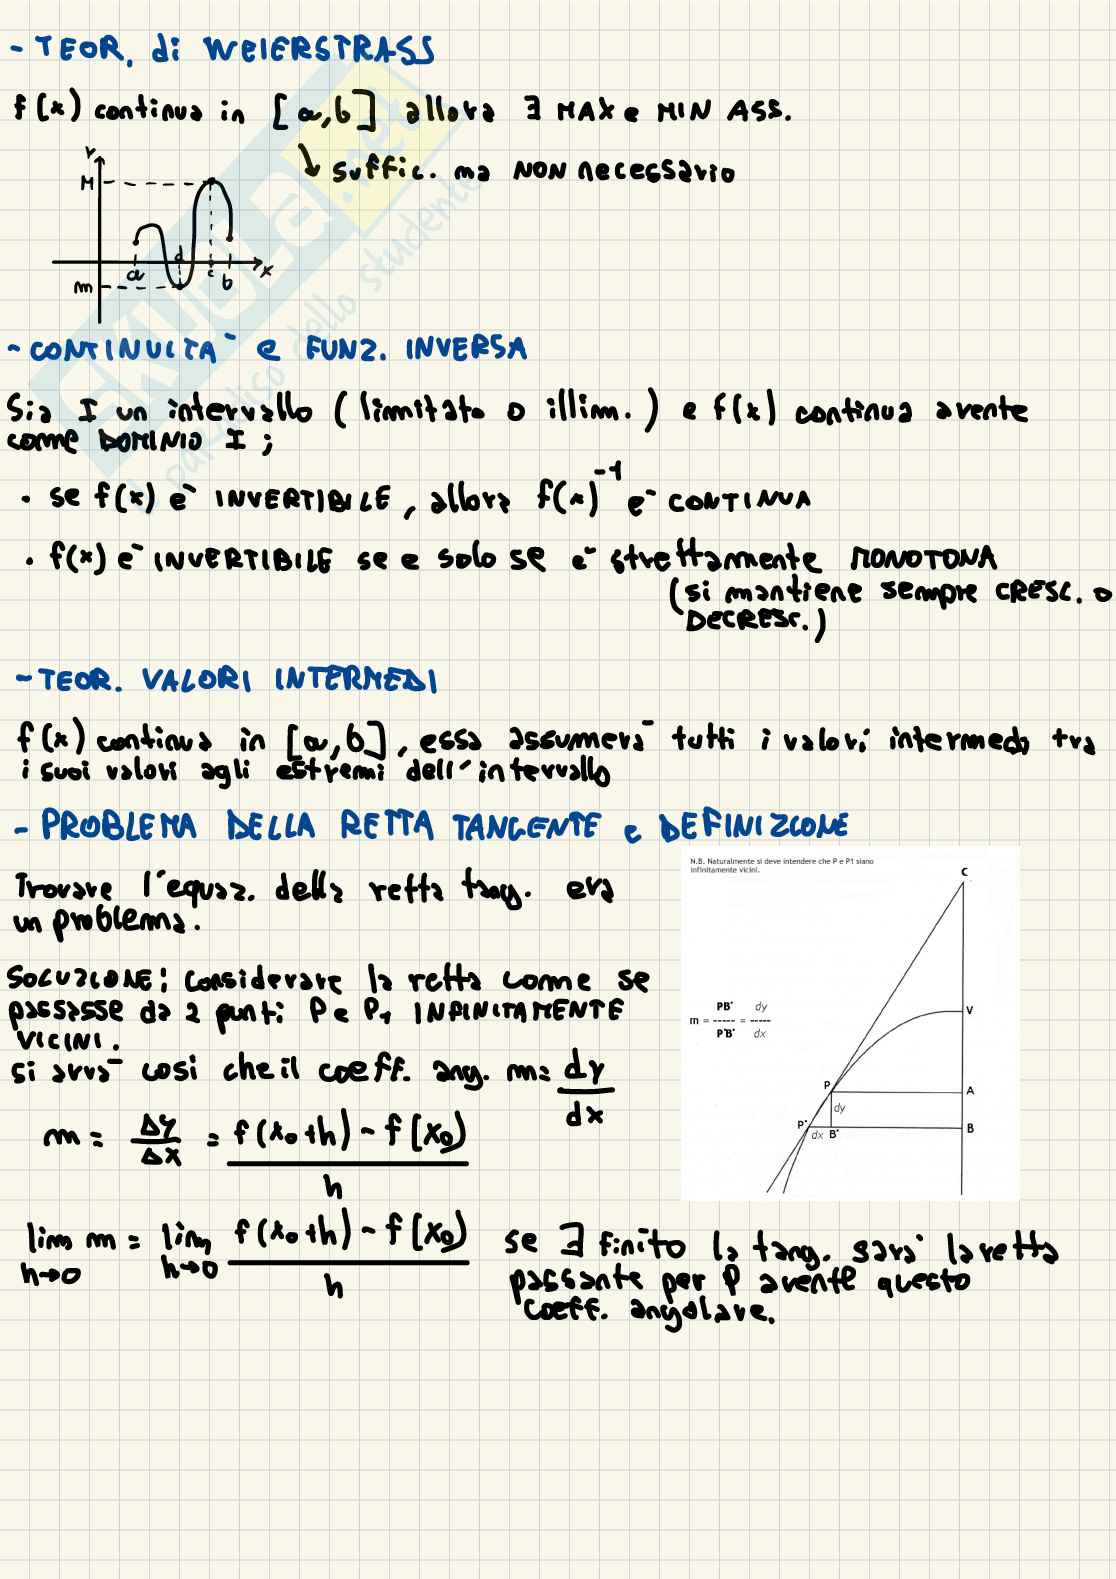 - TEOR. di WEIERSTRASS
f(x) continua in [a,b] allora ∃ MAX e MIN ASS.
↘ suffic. ma NON necessario
Y
M
d
a
c
b
x
m
- CONTINUITÀ e FUNZ. INVERSA
Sia I un intervallo (limitato o illim.) e f(x) continua avente
come DOMINIO I;
• se f(x) è INVERTIBILE, allora f(x)⁻¹ è CONTINUA
• f(x) è INVERTIBILE se e solo se è strettamente MONOTONA
(si mantiene sempre CRESC. o
DECRESC.)
- TEOR. VALORI INTERMEDI
f(x) continua in [a,b], essa assumerà tutti i valori intermedi tra
i suoi valori agli estremi dell'intervallo
- PROBLEMA DELLA RETTA TANGENTE e DEFINIZIONE
N.B. Naturalmente si deve intendere che P e P1 siano
infinitamente vicini.
Trovare l'equaz. della retta tang. era
un problema.
SOLUZIONE: considerare la retta come se
passasse da 2 punti P e P₁ INFINITAMENTE
VICINI.
si avrà così che il coeff. ang. m = dy/dx
m = Δy/Δx = f(x₀+h) - f(x₀) / h
C
V
m = PB' / P'B' = dy / dx
P
A
dy
P'
dx
B'
B
lim h→0 m = lim h→0 f(x₀+h) - f(x₀) / h
se ∃ finito la tang. sarà la retta
passante per P avente questo
coeff. angolare.
SKUOLA.net
il paradiso dello studente